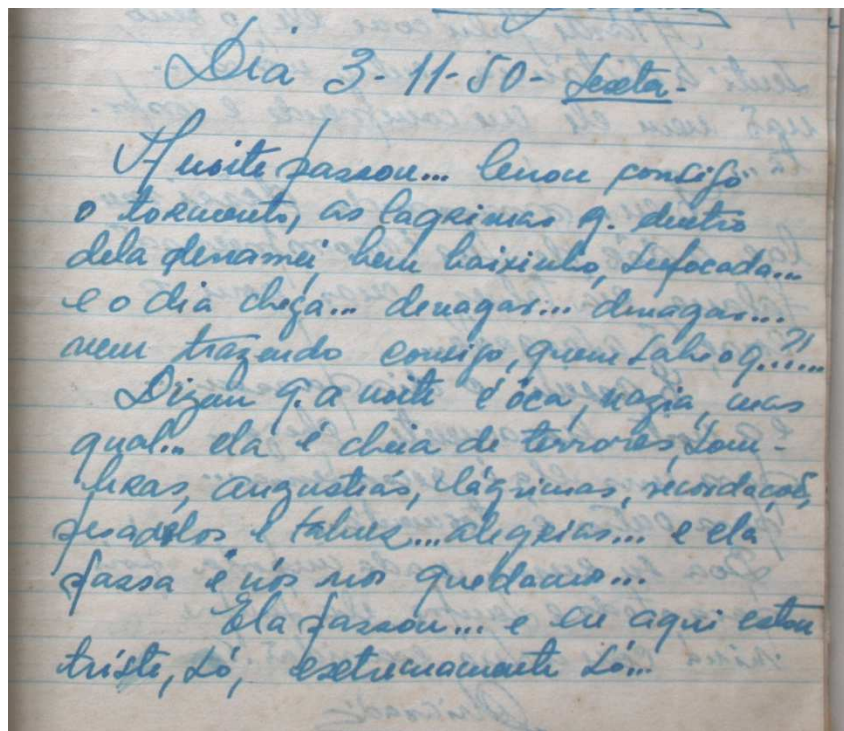 Dia 3-11-50- Sexta-
A noite passou... levou consigo
o tormento, as lagrimas q. dentro
dela derramei, bem baixinho, sufocada...
e o dia chega... devagar... devagar...
vem trazendo consigo, quem sabe o q...?!...
Dizem q. a noite é ôca, vazia, mas
qual... ela é cheia de terrores, som-
bras, angustias, lágrimas, recordações,
pesadelos e talvez... alegrias... e ela
passa e nós nos quedamos...
Ela passou... e eu aqui estou
triste, só, extremamente só...